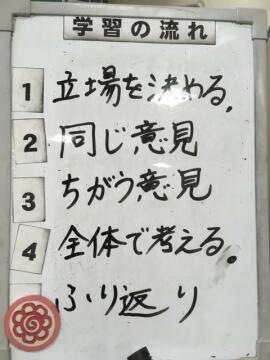 学習の流れ
1 立場を決める。
2 同じ意見
3 ちがう意見
4 全体で考える。
ふり返り